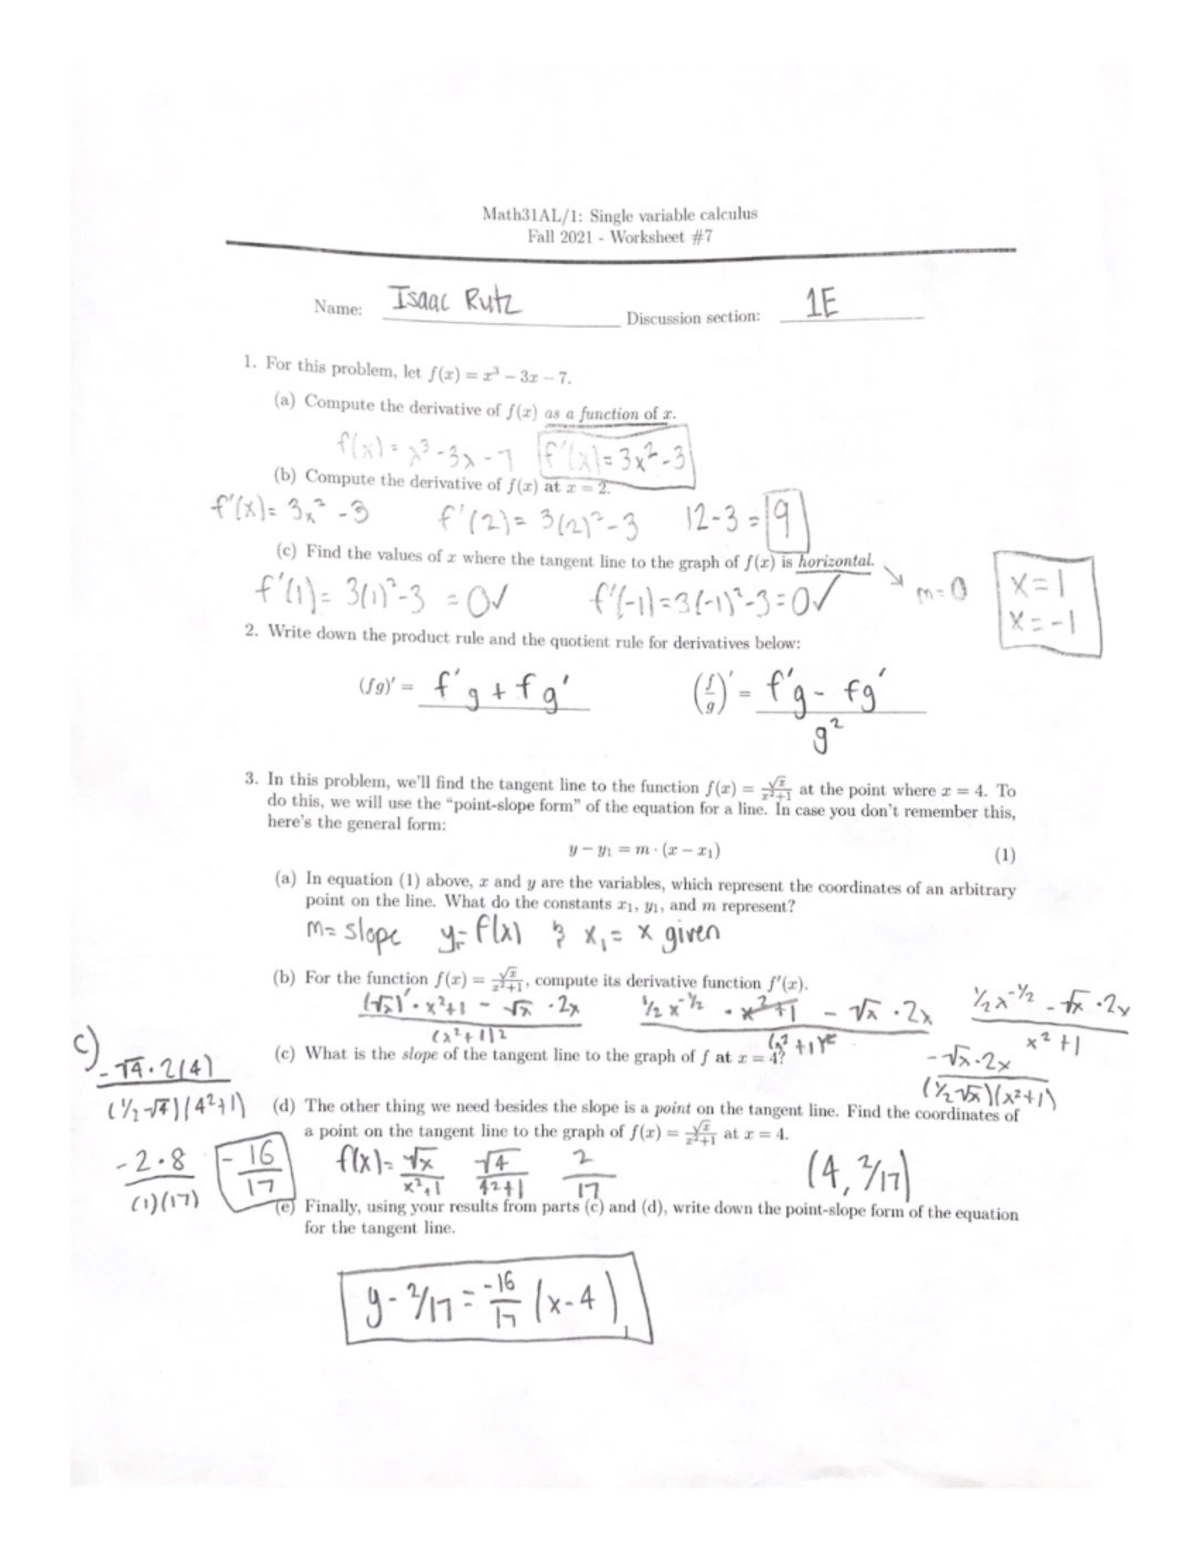 Math31AL/1: Single variable calculus
Fall 2021 - Worksheet #7
Name: Isaac Rutz Discussion section: 1E
1. For this problem, let f(x) = x³ − 3x − 7.
(a) Compute the derivative of f(x) as a function of x.
f(x) = x³ - 3x - 7 f'(x) = 3x² - 3
(b) Compute the derivative of f(x) at x = 2.
f'(x) = 3x² - 3 f'(2) = 3(2)² - 3 12 - 3 = 9
(c) Find the values of x where the tangent line to the graph of f(x) is horizontal. ↘ m = 0
f'(1) = 3(1)² - 3 = 0 ✓ f'(-1) = 3(-1)² - 3 = 0 ✓
x = 1
x = -1
2. Write down the product rule and the quotient rule for derivatives below:
(fg)' = f'g + fg' (f/g)' = f'g - fg' / g²
3. In this problem, we'll find the tangent line to the function f(x) = √x/(x²+1) at the point where x = 4. To
do this, we will use the "point-slope form" of the equation for a line. In case you don't remember this,
here's the general form:
y − y₁ = m · (x − x₁) (1)
(a) In equation (1) above, x and y are the variables, which represent the coordinates of an arbitrary
point on the line. What do the constants x₁, y₁, and m represent?
m = slope y₁ = f(x) & x₁ = x given
(b) For the function f(x) = √x/(x²+1), compute its derivative function f'(x).
(√x)' · x²+1 - √x · 2x / (x²+1)² ½ x^-½ · x²+1 - √x · 2x / (x²+1)² ½ x^-½ - √x · 2x / x²+1
-√x · 2x / (½ √x)(x²+1)
(c) What is the slope of the tangent line to the graph of f at x = 4?
c) -√4 · 2(4) / (½ · √4)(4²+1)
-2 · 8 / (1)(17) -16/17
(d) The other thing we need besides the slope is a point on the tangent line. Find the coordinates of
a point on the tangent line to the graph of f(x) = √x/(x²+1) at x = 4.
f(x) = √x / x²+1 √4 / 4²+1 2/17 (4, 2/17)
(e) Finally, using your results from parts (c) and (d), write down the point-slope form of the equation
for the tangent line.
y - 2/17 = -16/17 (x - 4)